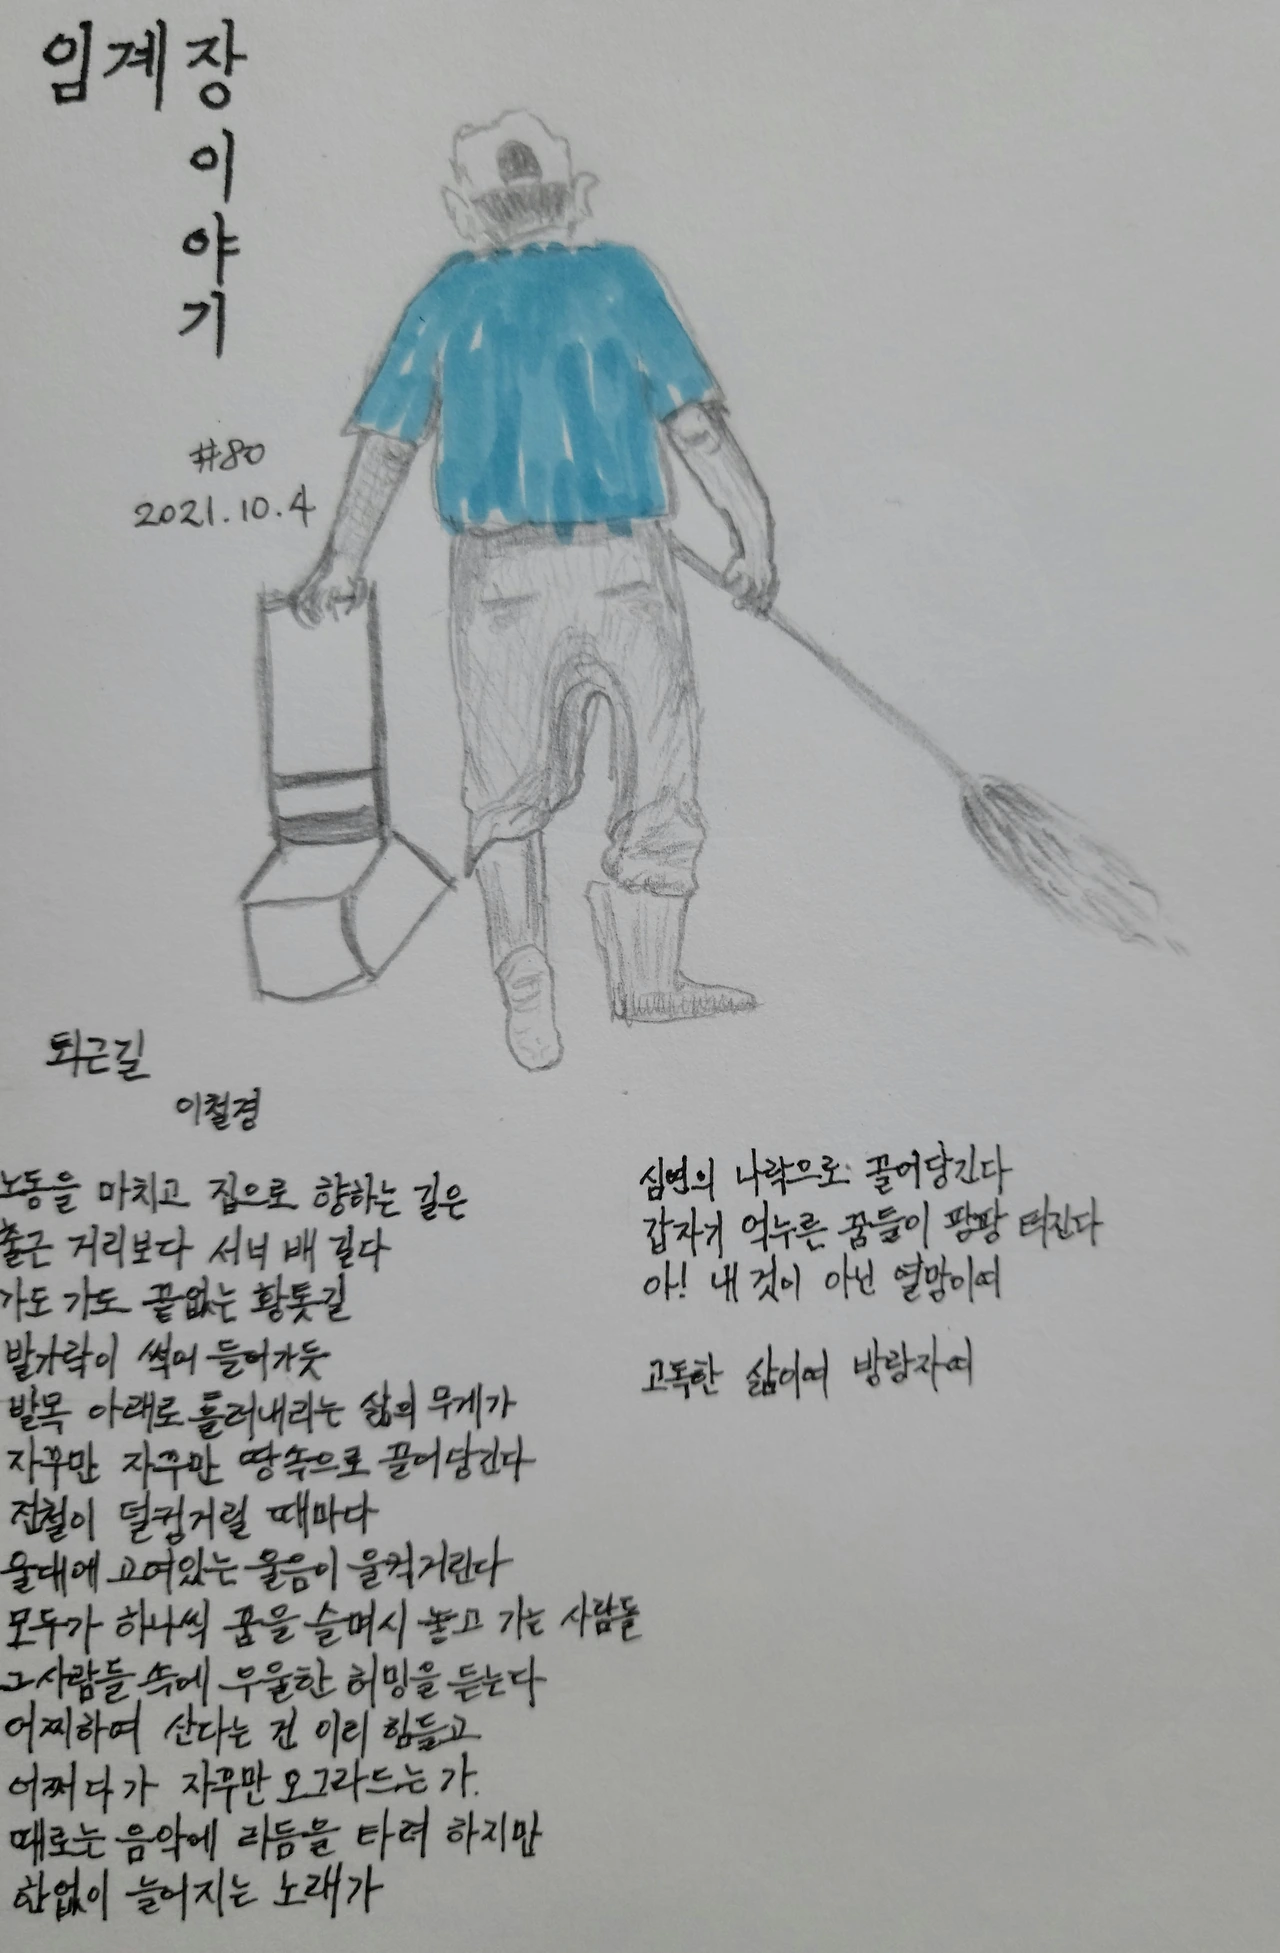 임계장
이
야
기
#80
2021.10.4
퇴근길
이철경
노동을 마치고 집으로 향하는 길은
출근 거리보다 서너 배 길다
가도 가도 끝없는 황톳길
발가락이 썩어 들어가듯
발목 아래로 흘러내리는 삶의 무게가
자꾸만 자꾸만 땅속으로 끌어당긴다
전철이 덜컹거릴 때마다
울대에 고여있는 울음이 울컥거린다
모두가 하나씩 꿈을 슬며시 놓고 가는 사람들
그 사람들 속에 우울한 허밍을 듣는다
어찌하여 산다는 건 이리 힘들고
어쩌다가 자꾸만 오그라드는가.
때로는 음악에 리듬을 타려 하지만
한없이 늘어지는 노래가
심연의 나락으로 끌어당긴다
갑자기 억누른 꿈들이 팡팡 터진다
아! 내 것이 아닌 열망이여
고독한 삶이여 방랑자여